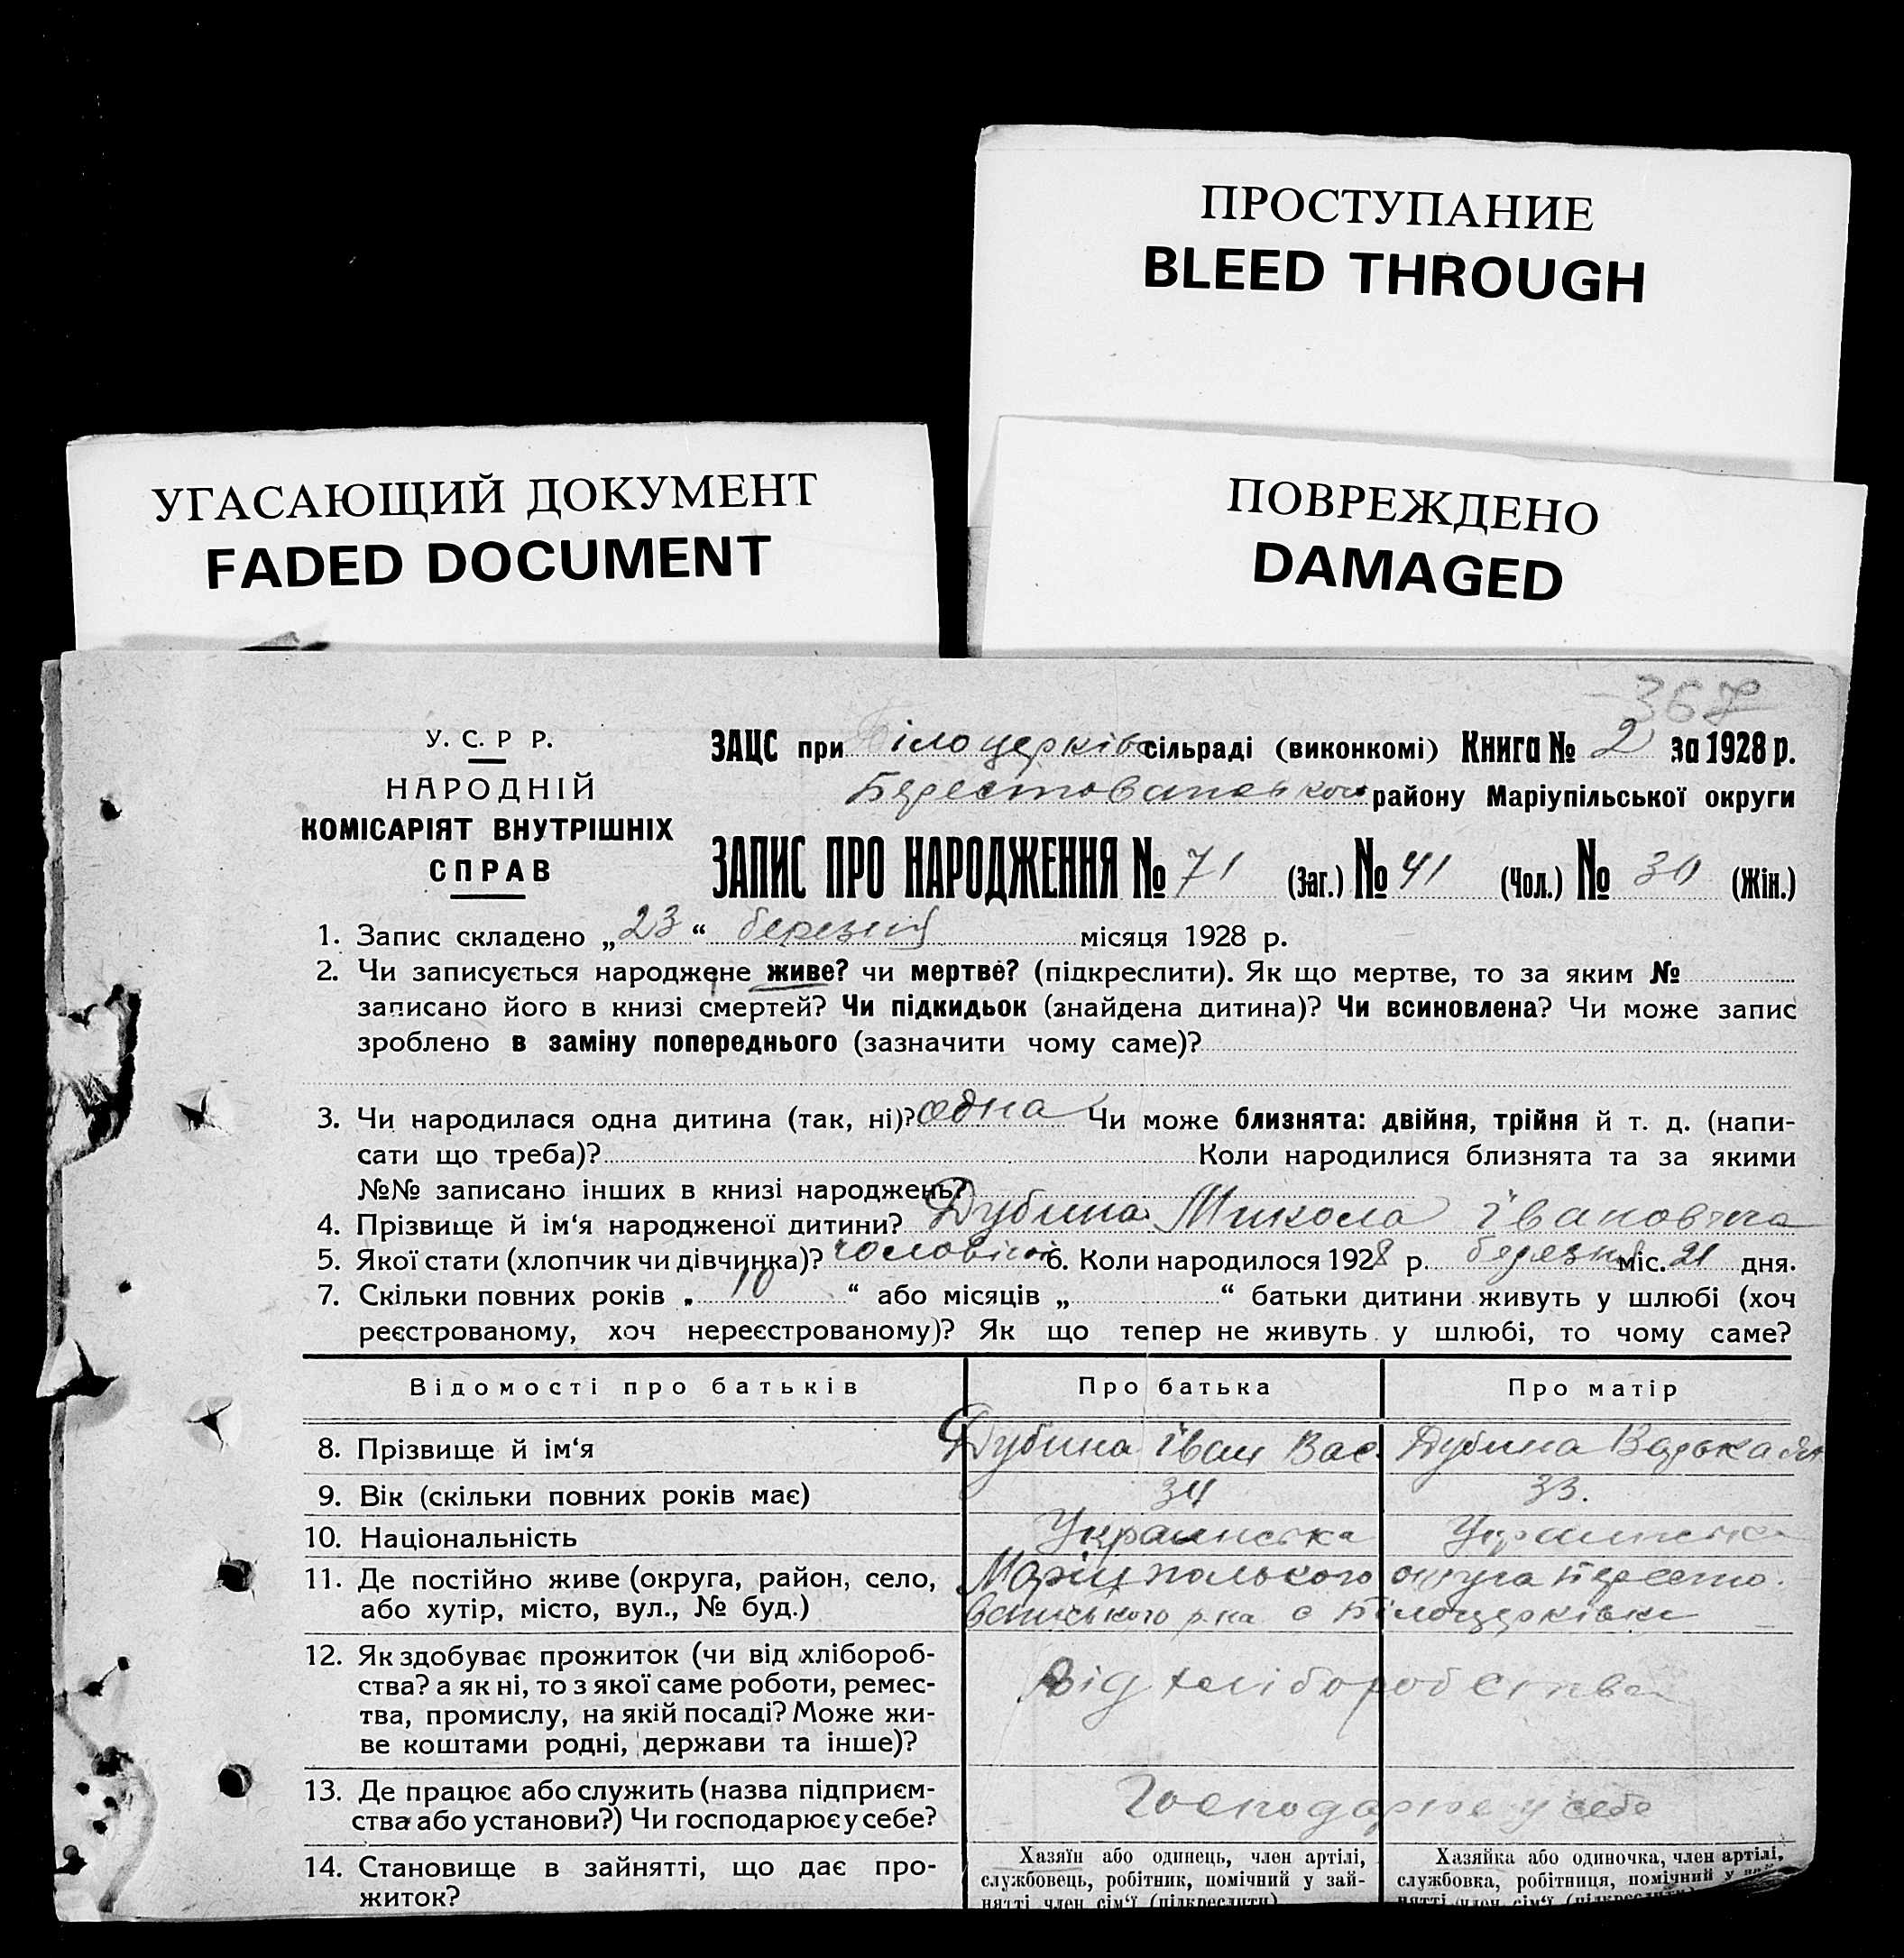 ПРОСТУПАНИЕ
BLEED THROUGH
УГАСАЮЩИЙ ДОКУМЕНТ
FADED DOCUMENT
ПОВРЕЖДЕНО
DAMAGED
У. С. Р Р.
НАРОДНІЙ
КОМІСАРІЯТ ВНУТРІШНІХ
СПРАВ
ЗАЦС при Білоцерківс сільраді (виконкомі) Книга № 2 за 1928 р.
району Маріупільської округи
ЗАПИС ПРО НАРОДЖЕННЯ № 71 (Заг.) № 41 (Чол.) № 30 (Жін.)
1. Запис складено „23“ березня місяця 1928 р.
2. Чи записується народжене живе? чи мертве? (підкреслити). Як що мертве, то за яким №
записано його в книзі смертей? Чи підкидьок (знайдена дитина)? Чи всиновлена? Чи може запис
зроблено в заміну попереднього (зазначити чому саме)?
3. Чи народилася одна дитина (так, ні)? одна Чи може близнята: двійня, трійня й т. д. (напи-
сати що треба)? Коли народилися близнята та за якими
№№ записано інших в книзі народжень?
4. Прізвище й ім‘я народженої дитини? Дубина Микола Івановича
5. Якої стати (хлопчик чи дівчинка)? 6. Коли народилося 1928 р. березня міс. 21 дня.
7. Скільки повних років „ 10 “ або місяців „ “ батьки дитини живуть у шлюбі (хоч
реєстрованому, хоч нереєстрованому)? Як що тепер не живуть у шлюбі, то чому саме?
Відомості про батьків Про батька Про матір
8. Прізвище й ім‘я Дубина Іван Вас. Дубина
9. Вік (скільки повних років має) 34 33.
10. Національність Украинська Украинська
11. Де постійно живе (округа, район, село, Маріупольского округа Бересто-
або хутір, місто, вул., № буд.) р-на с Білоцерківка
12. Як здобуває прожиток (чи від хлібороб- Від хліборобства
ства? а як ні, то з якої саме роботи, ремес-
тва, промислу, на якій посаді? Може жи-
ве коштами родні, держави та інше)?
13. Де працює або служить (назва підприєм- Господарює у себе
ства або установи?) Чи господарює у себе?
14. Становище в зайнятті, що дає про-
житок?
Хазяїн або одинець, член артілі,
службовець, робітник, помічний у зай-
нятті член сім‘ї (підкреслити)
Хазяйка або одиночка, член артілі,
службовка, робітниця, помічний у
нятті член сім‘ї